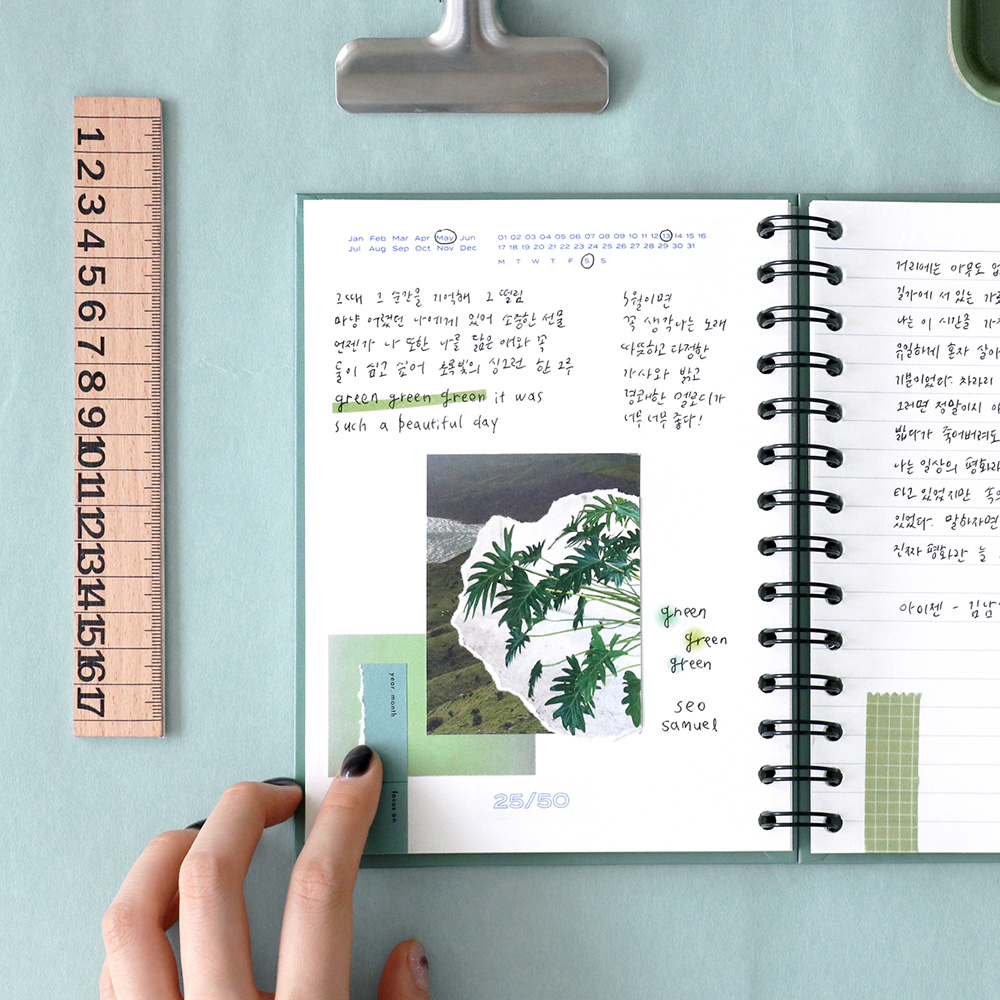 1 2 3 4 5 6 7 8 9 10 11 12 13 14 15 16 17
Jan Feb Mar Apr May Jun
Jul Aug Sep Oct Nov Dec
01 02 03 04 05 06 07 08 09 10 11 12 13 14 15 16
17 18 19 20 21 22 23 24 25 26 27 28 29 30 31
M T W T F S S
그때 그 순간을 기억해 그 떨림
마냥 어렸던 나에게 있어 소중한 선물
언젠가 나 또한 나를 닮은 애와 꼭
둘이 쉽고 싶어 초록빛의 싱그런 한 그루
green green green it was
such a beautiful day
5월이면
꼭 생각나는 노래
따뜻하고 다정한
가사와 밝고
경쾌한 멜로디가
너무 너무 좋다!
green
green
green
seo
samuel
year month
focus on
25/50
거리에는 아무도
길가에 서 있는
나는 이 시간를
유일하게 혼자
기분이었다. 차라리
그러면 정말이지
밟다가 죽어버려도
나는 일상의
타고 있었지만
있었다. 말하자면
진짜 평화란 늘
아이젠 -